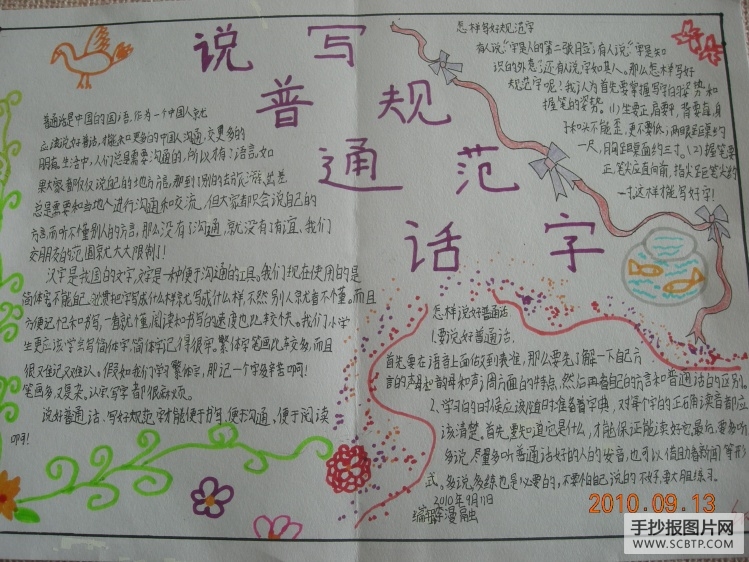 说写
普规
通范
话字
普通话是中国的国语,作为一个中国人就
应该说好普通话,才能和更多的中国人沟通,交更多的
朋友,生活中,人们总是需要沟通的,所以有了语言,如
果大家都仅仅说自己的地方言,那到了别的去旅游、出差
总是需要和当地人进行沟通和交流,但大家都只会说自己的
方言,而听不懂别人的方言,那么没有了沟通,就没有了友谊、我们
交朋友的范围就大大限制了!
汉字是我国的文字,文字是一种便于沟通的工具。我们现在使用的是
简体字,不能自己想把字写成什么样就写成什么样,不然别人就看不懂。而且
方便记忆和书写,一看就懂,阅读和书写的速度也比较快。我们小学
生更应该学会写简体字,简体字记得很牢。繁体字笔画比较多,而且
很难记又难认。假如我们学习繁体字,那记一个字及辛苦啊!
笔画多,又复杂。认识、写字都很麻烦。
说好普通话、写好规范字才能便于书写、便于沟通、便于阅读
啊!
怎样写好规范字
有人说“字是人的第二张脸”,有人说“字是知
识的外衣”,还有人说字如其人。那么怎样写好
规范字呢!我认为首先要掌握写字的姿势和
握笔的姿势。(1)坐要正,肩要平,背要直,身
子和头不能歪,更不要低,两眼距桌约
一尺,胸距桌面约三寸。(2)握笔要
正,笔尖应向前,指尖距笔尖约
一寸,这样才能写好字!
怎样说好普通话
1.要说好普通话.
首先要在语音上面做到发准,那么要先了解一下自己方
言的声母、韵母和声调方面的特点,然后再看自己的方言和普通话的区别。
2、学习的时候应该随时准备着字典,对每个字的正确读音都应
该清楚。首先要知道它是什么,才能保证能读好它最后.要多听
多说,尽量多听普通话好的人的发音,也可以借助看新闻等形
式。多说,多练也是必要的,不要怕自己说的不好,要大胆练习。
2010年9月11日
编辑:
2010.09.13
手抄报图片网
WWW.SCBTP.COM